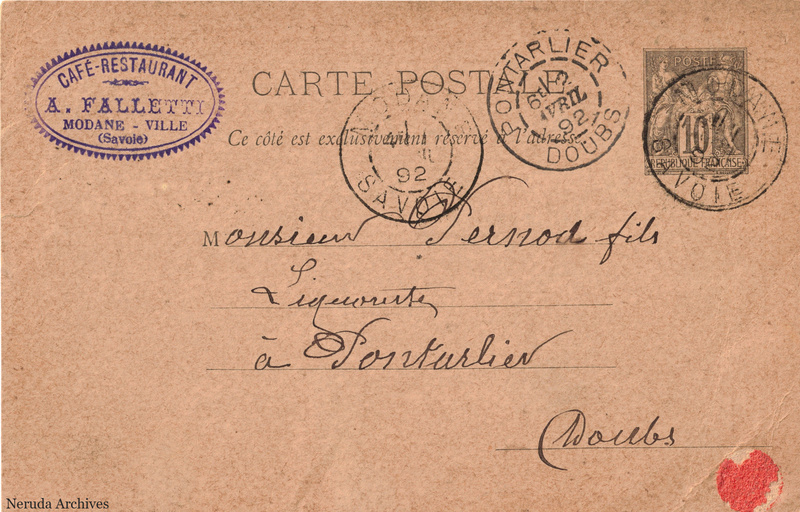 CAFÉ-RESTAURANT
A. FALLETTI
MODANE - VILLE
(Savoie)
CARTE POSTALE
Ce côté est exclusivement réservé à l'adresse.
PONTARLIER
AVRIL
92
DOUBS
MODANE
92
SAVOIE
POSTE
10
RÉPUBLIQUE FRANÇAISE
MODANE
SAVOIE
Monsieur Pernod fils
Liquoriste
à Pontarlier
Doubs
Neruda Archives